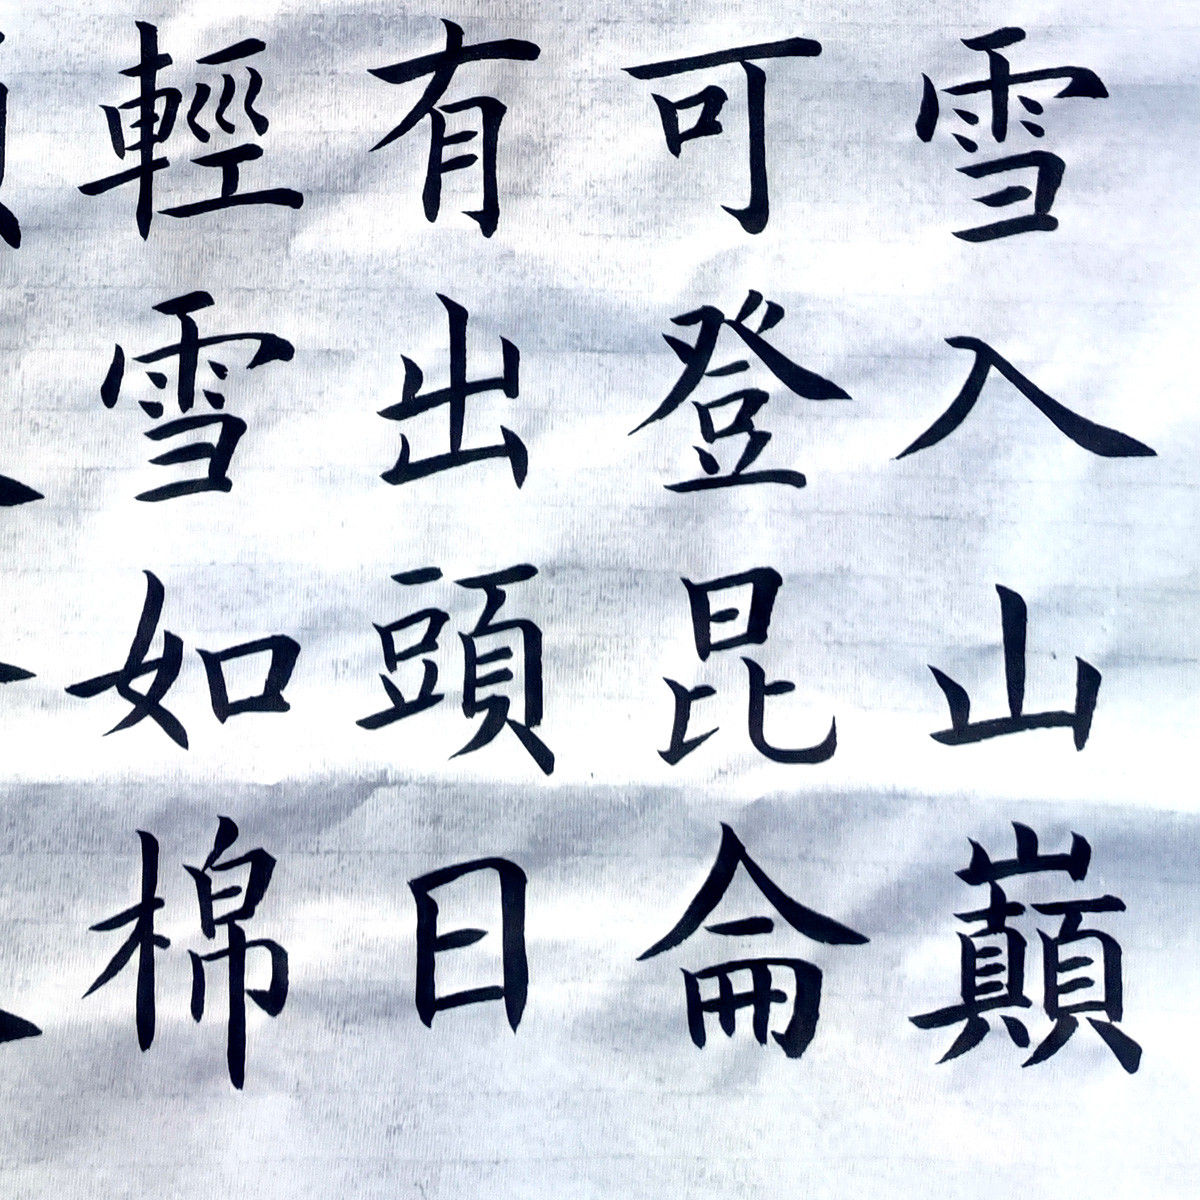 雪入山巔
可登昆侖
有出頭日
輕雪如棉